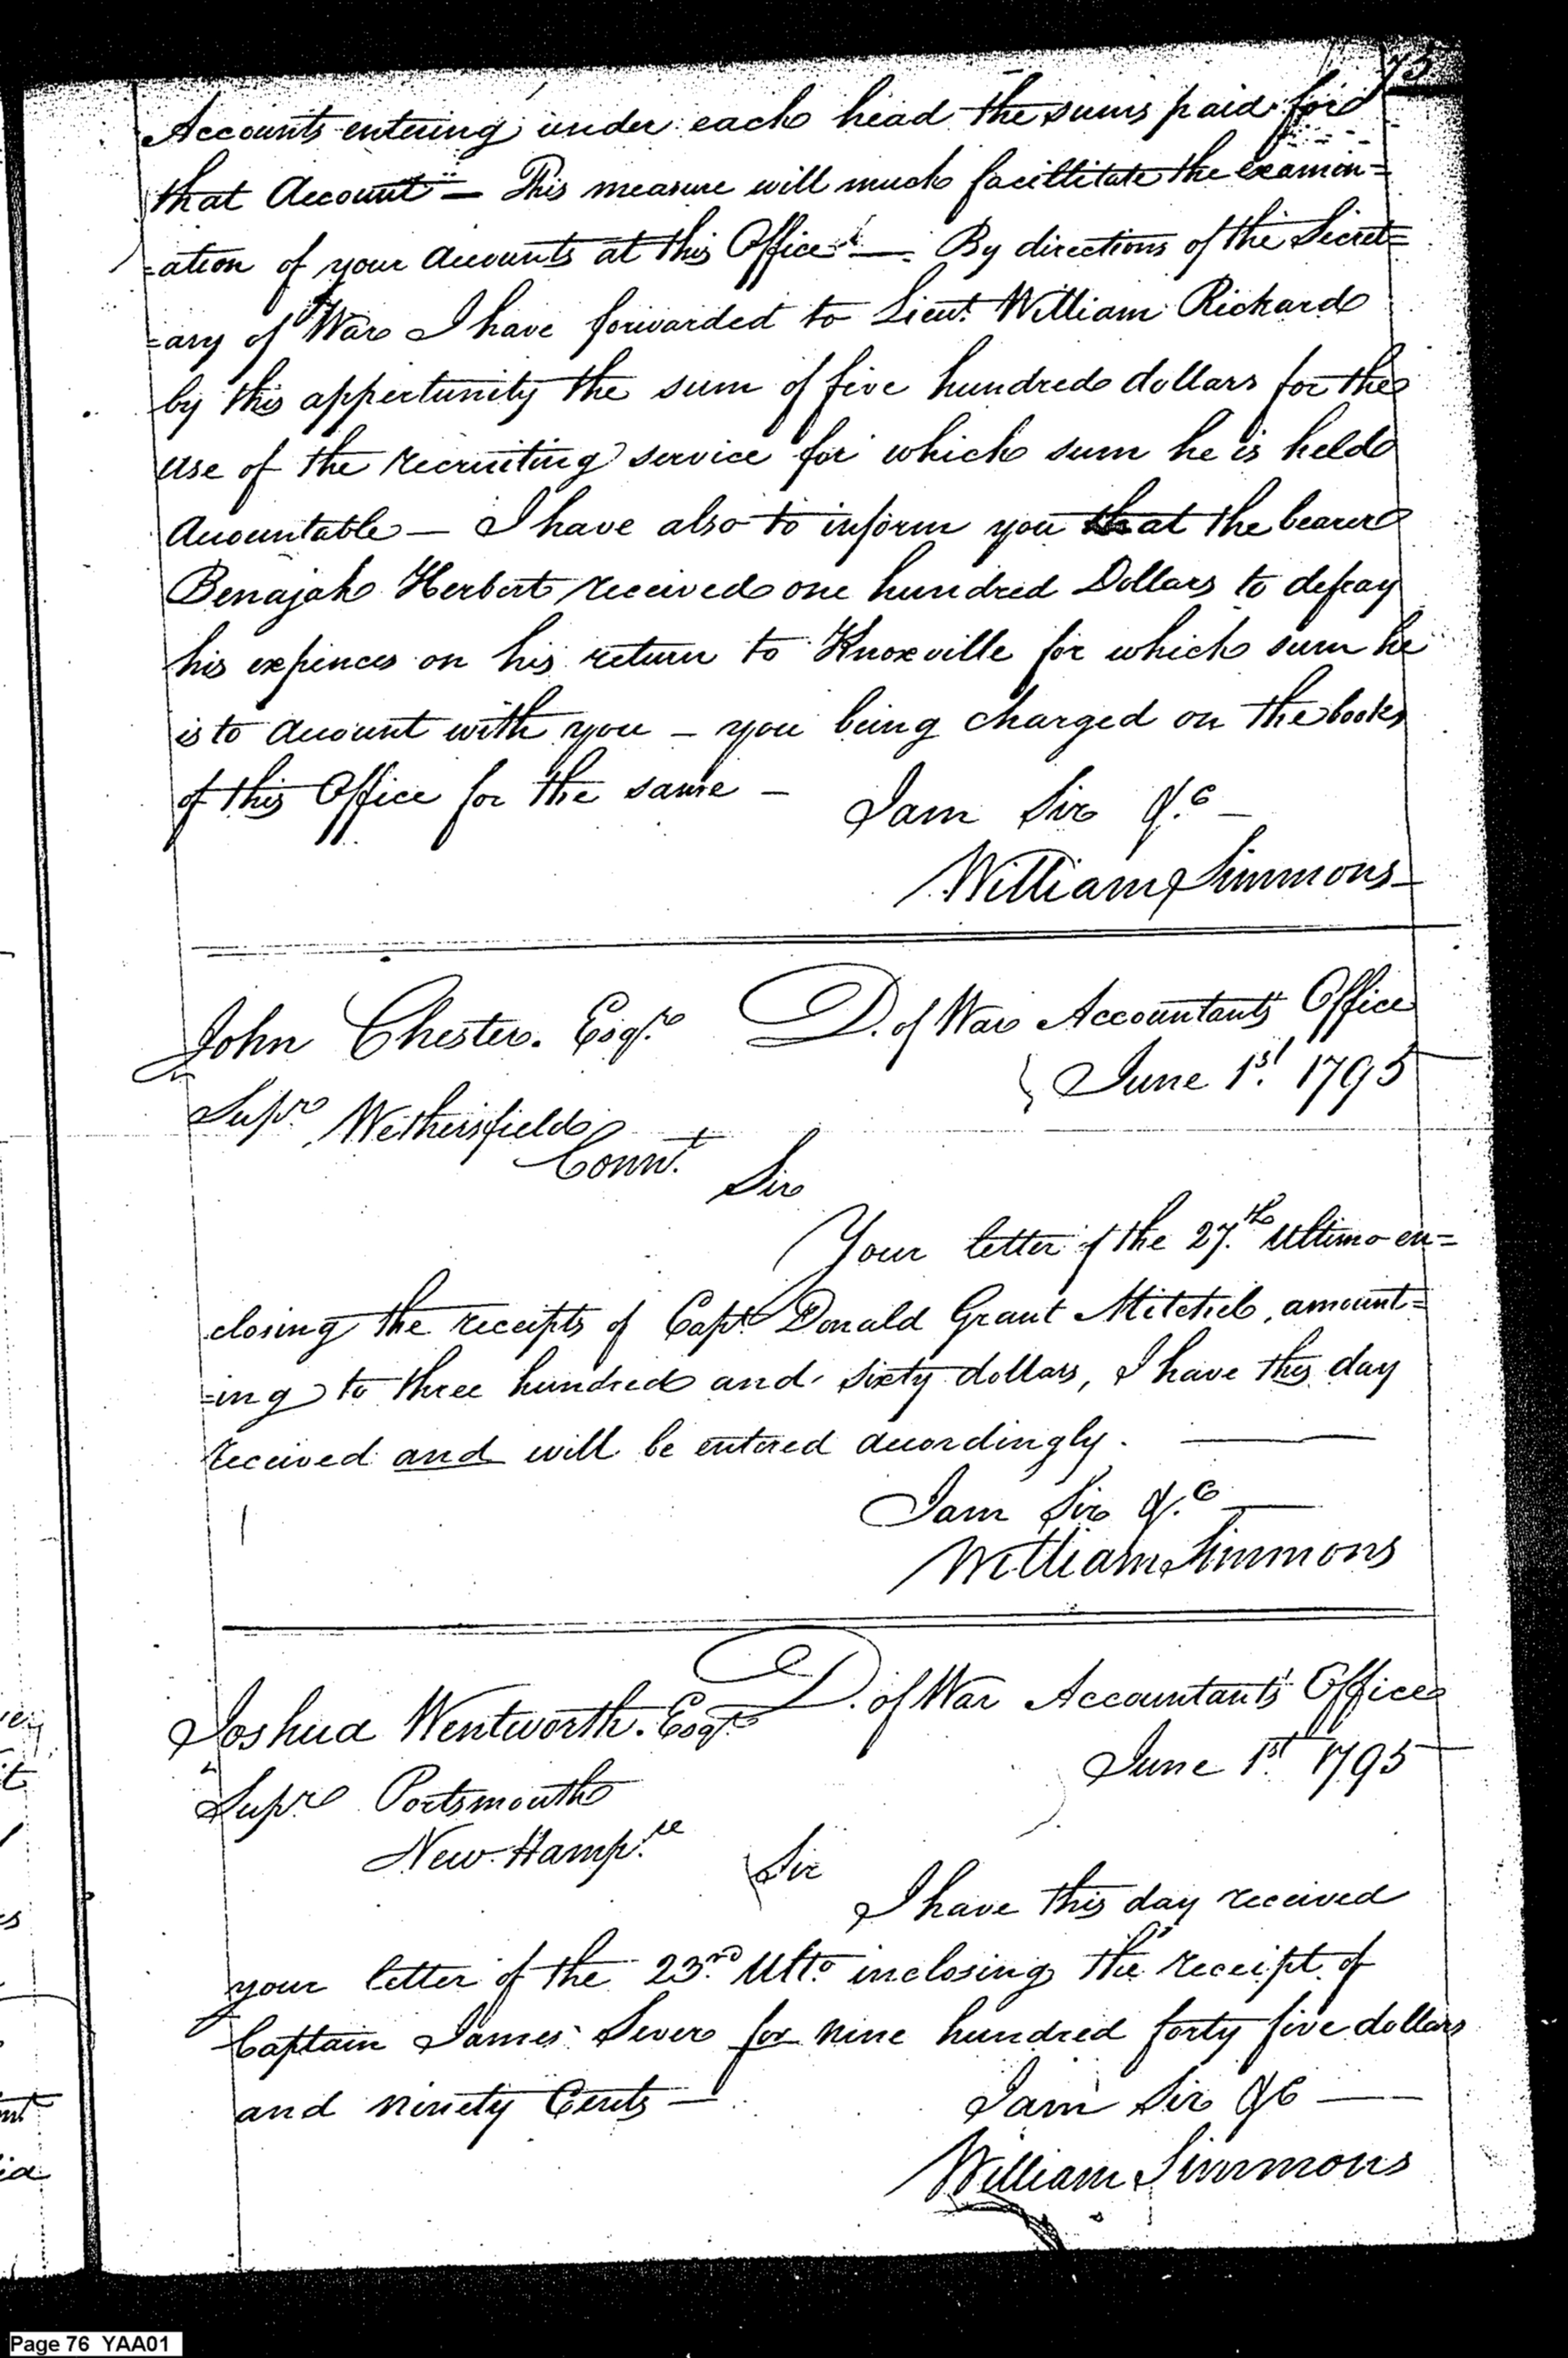 75
Accounts entering under each head the sums paid for
that Account — This measure will much facillitate the examin=
=ation of your accounts at this Office — By directions of the Secret=
=ary of War I have forwarded to Lieut. William Rickard
by this appertunity the sum of five hundred dollars for the
use of the recruiting service for which sum he is held
Accountable — I have also to inform you that the bearer
Benajah Herbert received one hundred Dollars to defray
his expinces on his return to Knoxville for which sum he
is to account with you — you being charged on the books
of this Office for the same —
I am Sir &c —
William Simmons
John Chester. Esqre D. of War Accountants Office
June 1st 1795
Supr Wethersfield
Connt
Sir
Your letter of the 27th Ultimo en=
closing the receipts of Capt. Donald Grant Mitchel, amount=
=ing to three hundred and sixty dollars, I have this day
received and will be entered accordingly. —
I am Sir &c —
William Simmons
Joshua Wentworth. Esqr D. of War Accountants Office
June 1st 1795
Supr Portsmouth
New Hampre
Sir
I have this day received
your letter of the 23rd Ulto inclosing the receipt of
Captain James Sever for nine hundred forty five dollars
and ninety Cents —
I am Sir &c —
William Simmons
Page 76 YAA01